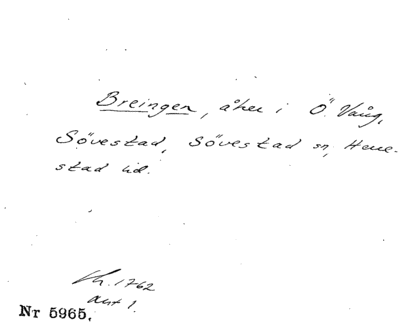 Breingen, åker i Ö. Vång,
Sövestad, Sövestad sn, Herre-
stad hd.
Lh. 1762
akt 1.
Nr 5965.